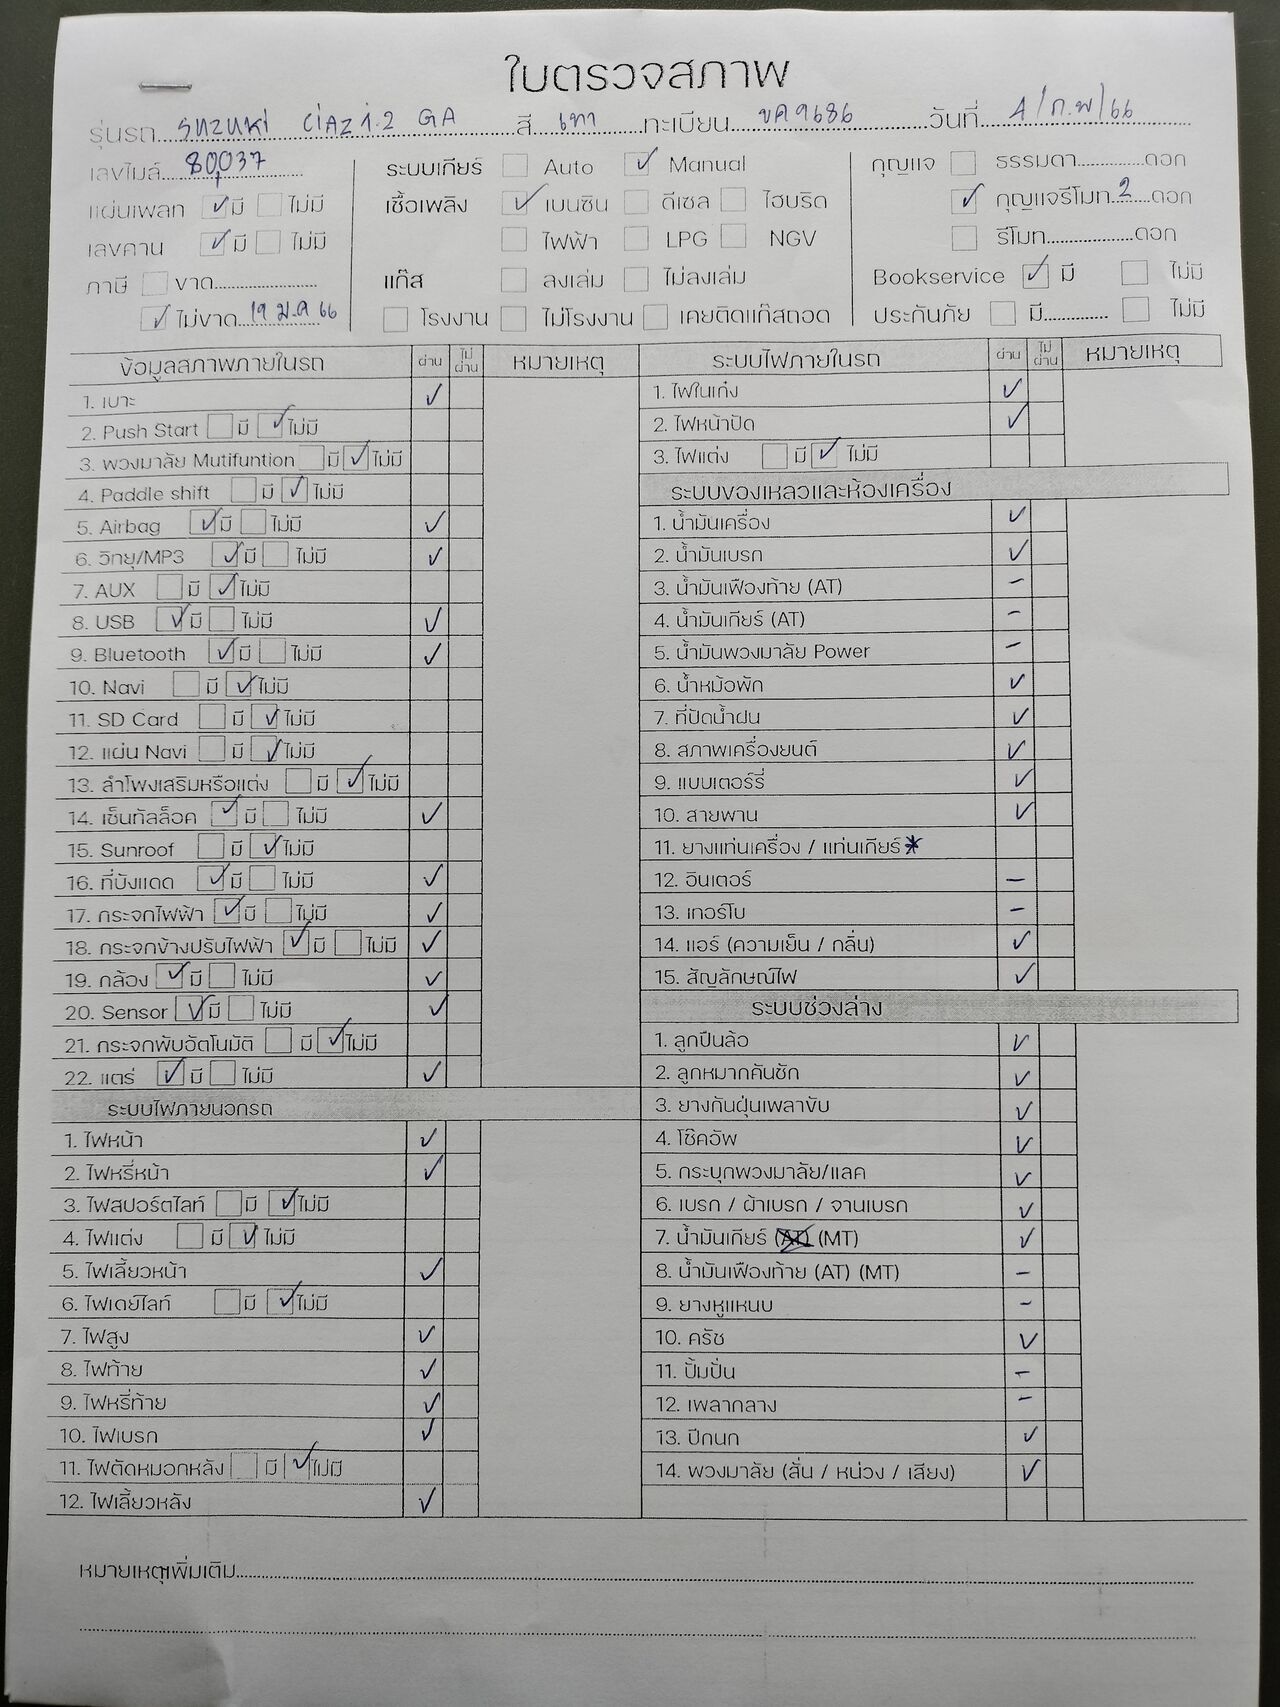 ใบตรวจสภาพ
รุ่นรถ SUZUKI CIAZ 1.2 GA สี เทา ทะเบียน ขค 9686 วันที่ 4/ก.พ/66
เลขไมล์ 80,037
แผ่นเพลท ✓ มี ไม่มี
เลขคาน ✓ มี ไม่มี
ภาษี ขาด
✓ ไม่ขาด 19 ม.ค 66
ระบบเกียร์ Auto ✓ Manual
เชื้อเพลิง ✓ เบนซิน ดีเซล ไฮบริด
ไฟฟ้า LPG NGV
แก๊ส ลงเล่ม ไม่ลงเล่ม
โรงงาน ไม่โรงงาน เคยติดแก๊สถอด
กุญแจ ธรรมดา ดอก
✓ กุญแจรีโมท 2 ดอก
รีโมท ดอก
Bookservice ✓ มี ไม่มี
ประกันภัย มี ไม่มี
ข้อมูลสภาพภายในรถ ผ่าน ไม่ผ่าน หมายเหตุ
1. เบาะ ✓
2. Push Start มี ✓ ไม่มี
3. พวงมาลัย Mutifuntion มี ✓ ไม่มี
4. Paddle shift มี ✓ ไม่มี
5. Airbag ✓ มี ไม่มี ✓
6. วิทยุ/MP3 ✓ มี ไม่มี ✓
7. AUX มี ✓ ไม่มี
8. USB ✓ มี ไม่มี ✓
9. Bluetooth ✓ มี ไม่มี ✓
10. Navi มี ✓ ไม่มี
11. SD Card มี ✓ ไม่มี
12. แผ่น Navi มี ✓ ไม่มี
13. ลำโพงเสริมหรือแต่ง มี ✓ ไม่มี
14. เซ็นทัลล็อค ✓ มี ไม่มี ✓
15. Sunroof มี ✓ ไม่มี
16. ที่บังแดด ✓ มี ไม่มี ✓
17. กระจกไฟฟ้า ✓ มี ไม่มี ✓
18. กระจกข้างปรับไฟฟ้า ✓ มี ไม่มี ✓
19. กล้อง ✓ มี ไม่มี ✓
20. Sensor ✓ มี ไม่มี ✓
21. กระจกพับอัตโนมัติ มี ✓ ไม่มี
22. แตร่ ✓ มี ไม่มี ✓
ระบบไฟภายนอกรถ
1. ไฟหน้า ✓
2. ไฟหรี่หน้า ✓
3. ไฟสปอร์ตไลท์ มี ✓ ไม่มี
4. ไฟแต่ง มี ✓ ไม่มี
5. ไฟเลี้ยวหน้า ✓
6. ไฟเดย์ไลท์ มี ✓ ไม่มี
7. ไฟสูง ✓
8. ไฟท้าย ✓
9. ไฟหรี่ท้าย ✓
10. ไฟเบรก ✓
11. ไฟตัดหมอกหลัง มี ✓ ไม่มี
12. ไฟเลี้ยวหลัง ✓
ระบบไฟภายในรถ ผ่าน ไม่ผ่าน หมายเหตุ
1. ไฟในเก๋ง ✓
2. ไฟหน้าปัด ✓
3. ไฟแต่ง มี ✓ ไม่มี
ระบบของเหลวและห้องเครื่อง
1. น้ำมันเครื่อง ✓
2. น้ำมันเบรก ✓
3. น้ำมันเฟืองท้าย (AT) –
4. น้ำมันเกียร์ (AT) –
5. น้ำมันพวงมาลัย Power –
6. น้ำหม้อพัก ✓
7. ที่ปัดน้ำฝน ✓
8. สภาพเครื่องยนต์ ✓
9. แบบเตอร์รี่ ✓
10. สายพาน ✓
11. ยางแท่นเครื่อง / แท่นเกียร์ *
12. อินเตอร์ –
13. เทอร์โบ –
14. แอร์ (ความเย็น / กลิ่น) ✓
15. สัญลักษณ์ไฟ ✓
ระบบช่วงล่าง
1. ลูกปืนล้อ ✓
2. ลูกหมากคันชัก ✓
3. ยางกันฝุ่นเพลาขับ ✓
4. โช๊คอัพ ✓
5. กระบุกพวงมาลัย/แลค ✓
6. เบรก / ผ้าเบรก / จานเบรก ✓
7. น้ำมันเกียร์ (AT) (MT) ✓
8. น้ำมันเฟืองท้าย (AT) (MT) –
9. ยางหูแหนบ –
10. ครัช ✓
11. ปั้มปั่น –
12. เพลากลาง –
13. ปีกนก ✓
14. พวงมาลัย (สั่น / หน่วง / เสียง) ✓
หมายเหตุเพิ่มเติม